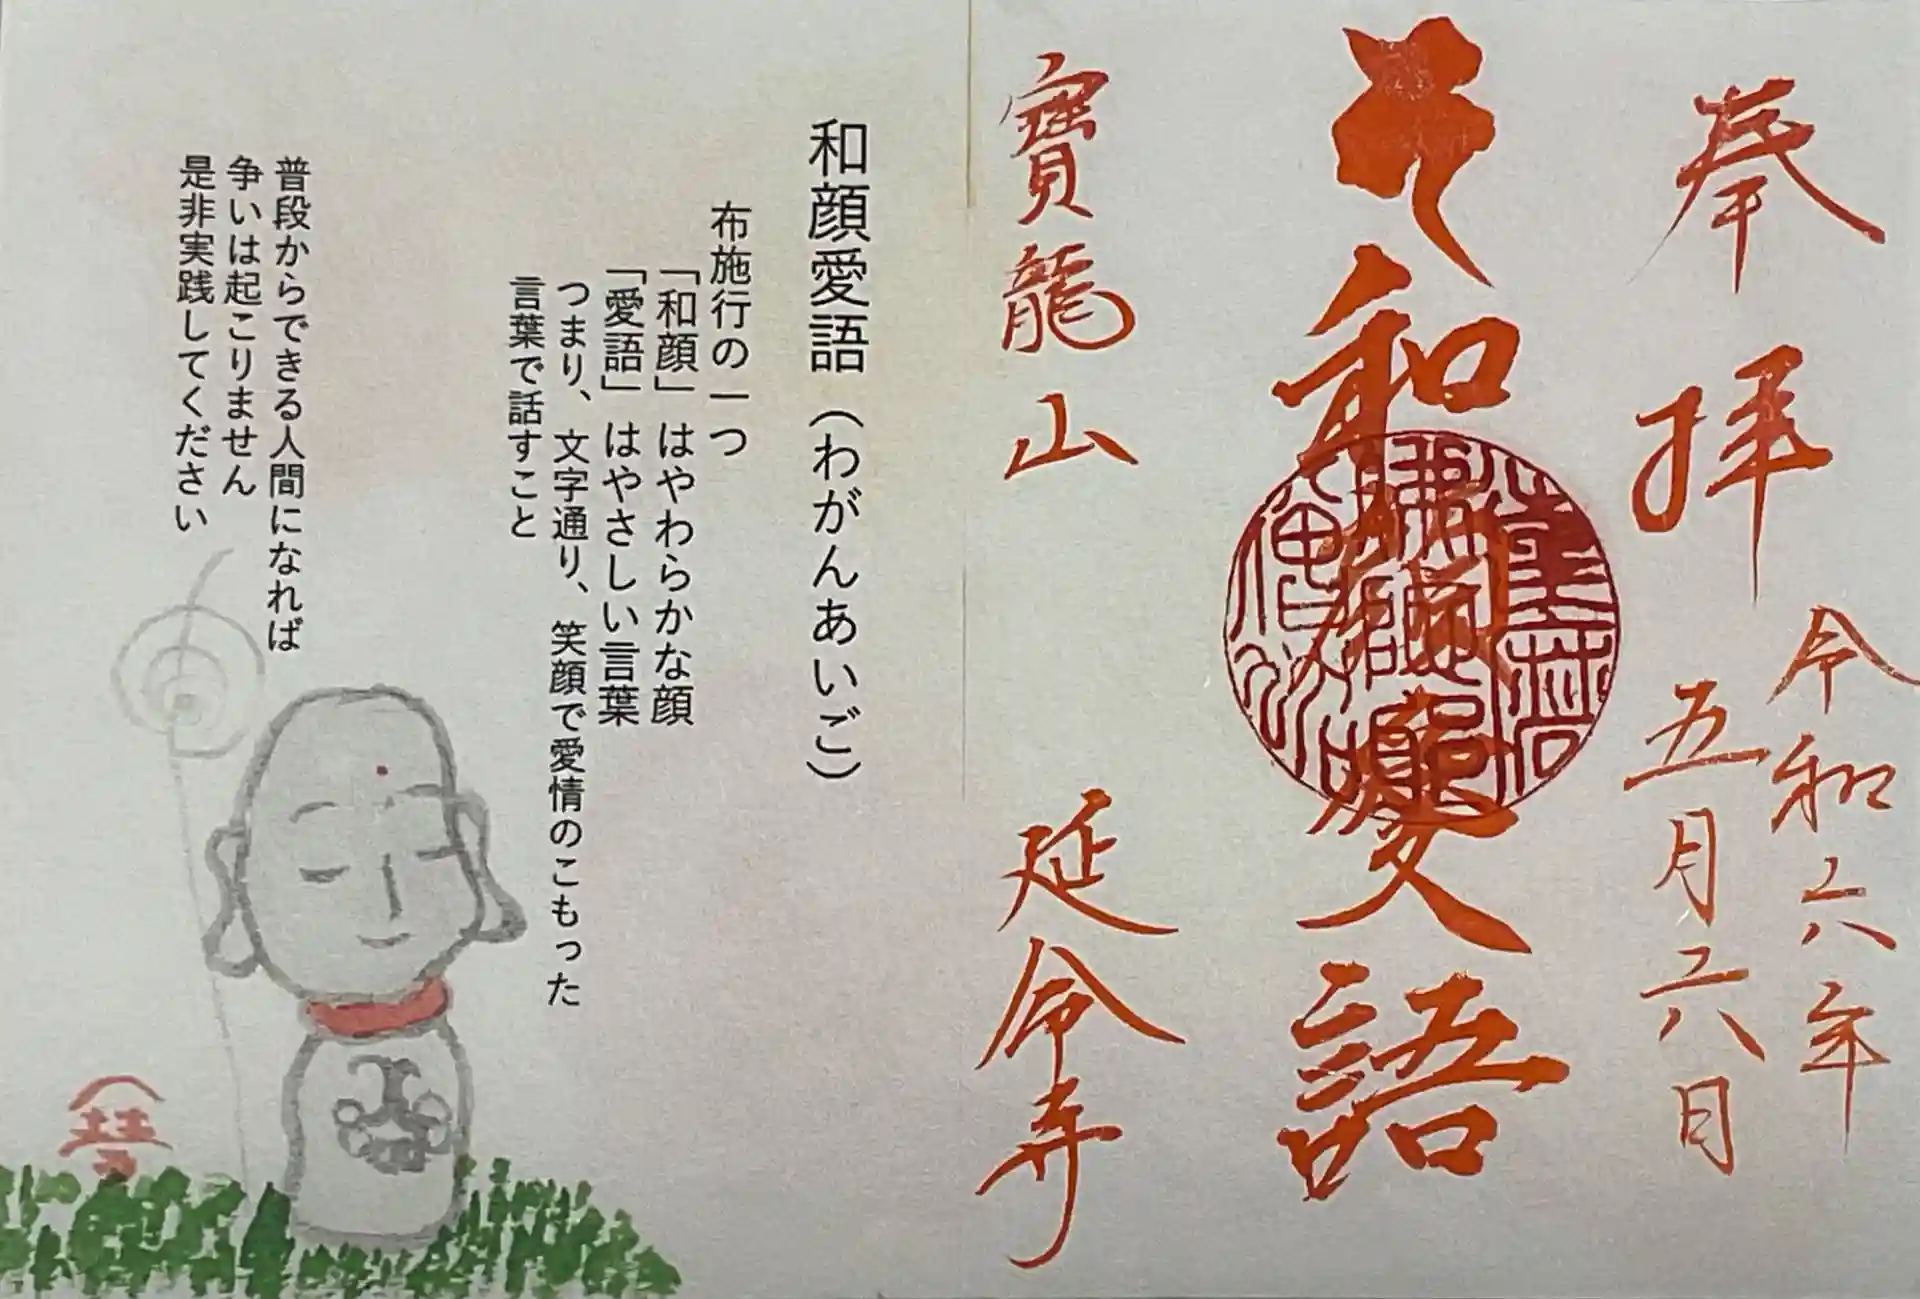 奉拝
令和六年
五月二六日
和顔愛語
寶龍山
延命寺
和顔愛語（わがんあいご）
布施行の一つ
「和顔」はやわらかな顔
「愛語」はやさしい言葉
つまり、文字通り、笑顔で愛情のこもった
言葉で話すこと
普段からできる人間になれば
争いは起こりません
是非実践してください